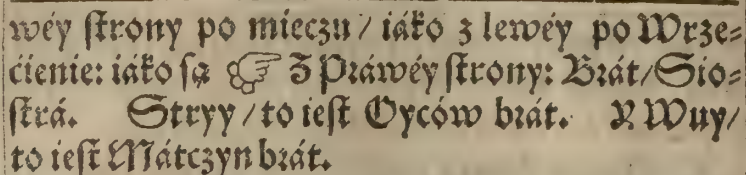 wéy ſtrony po mieczu / iáko z lewéy po Wrze⸗
ćienie: iáko ſą ☞ Z Práwéy ſtrony: Brát / Sio⸗
ſtrá. Stryy / to ieſt Oyców brát. Y Wuy /
to ieſt Mátczyn brát.